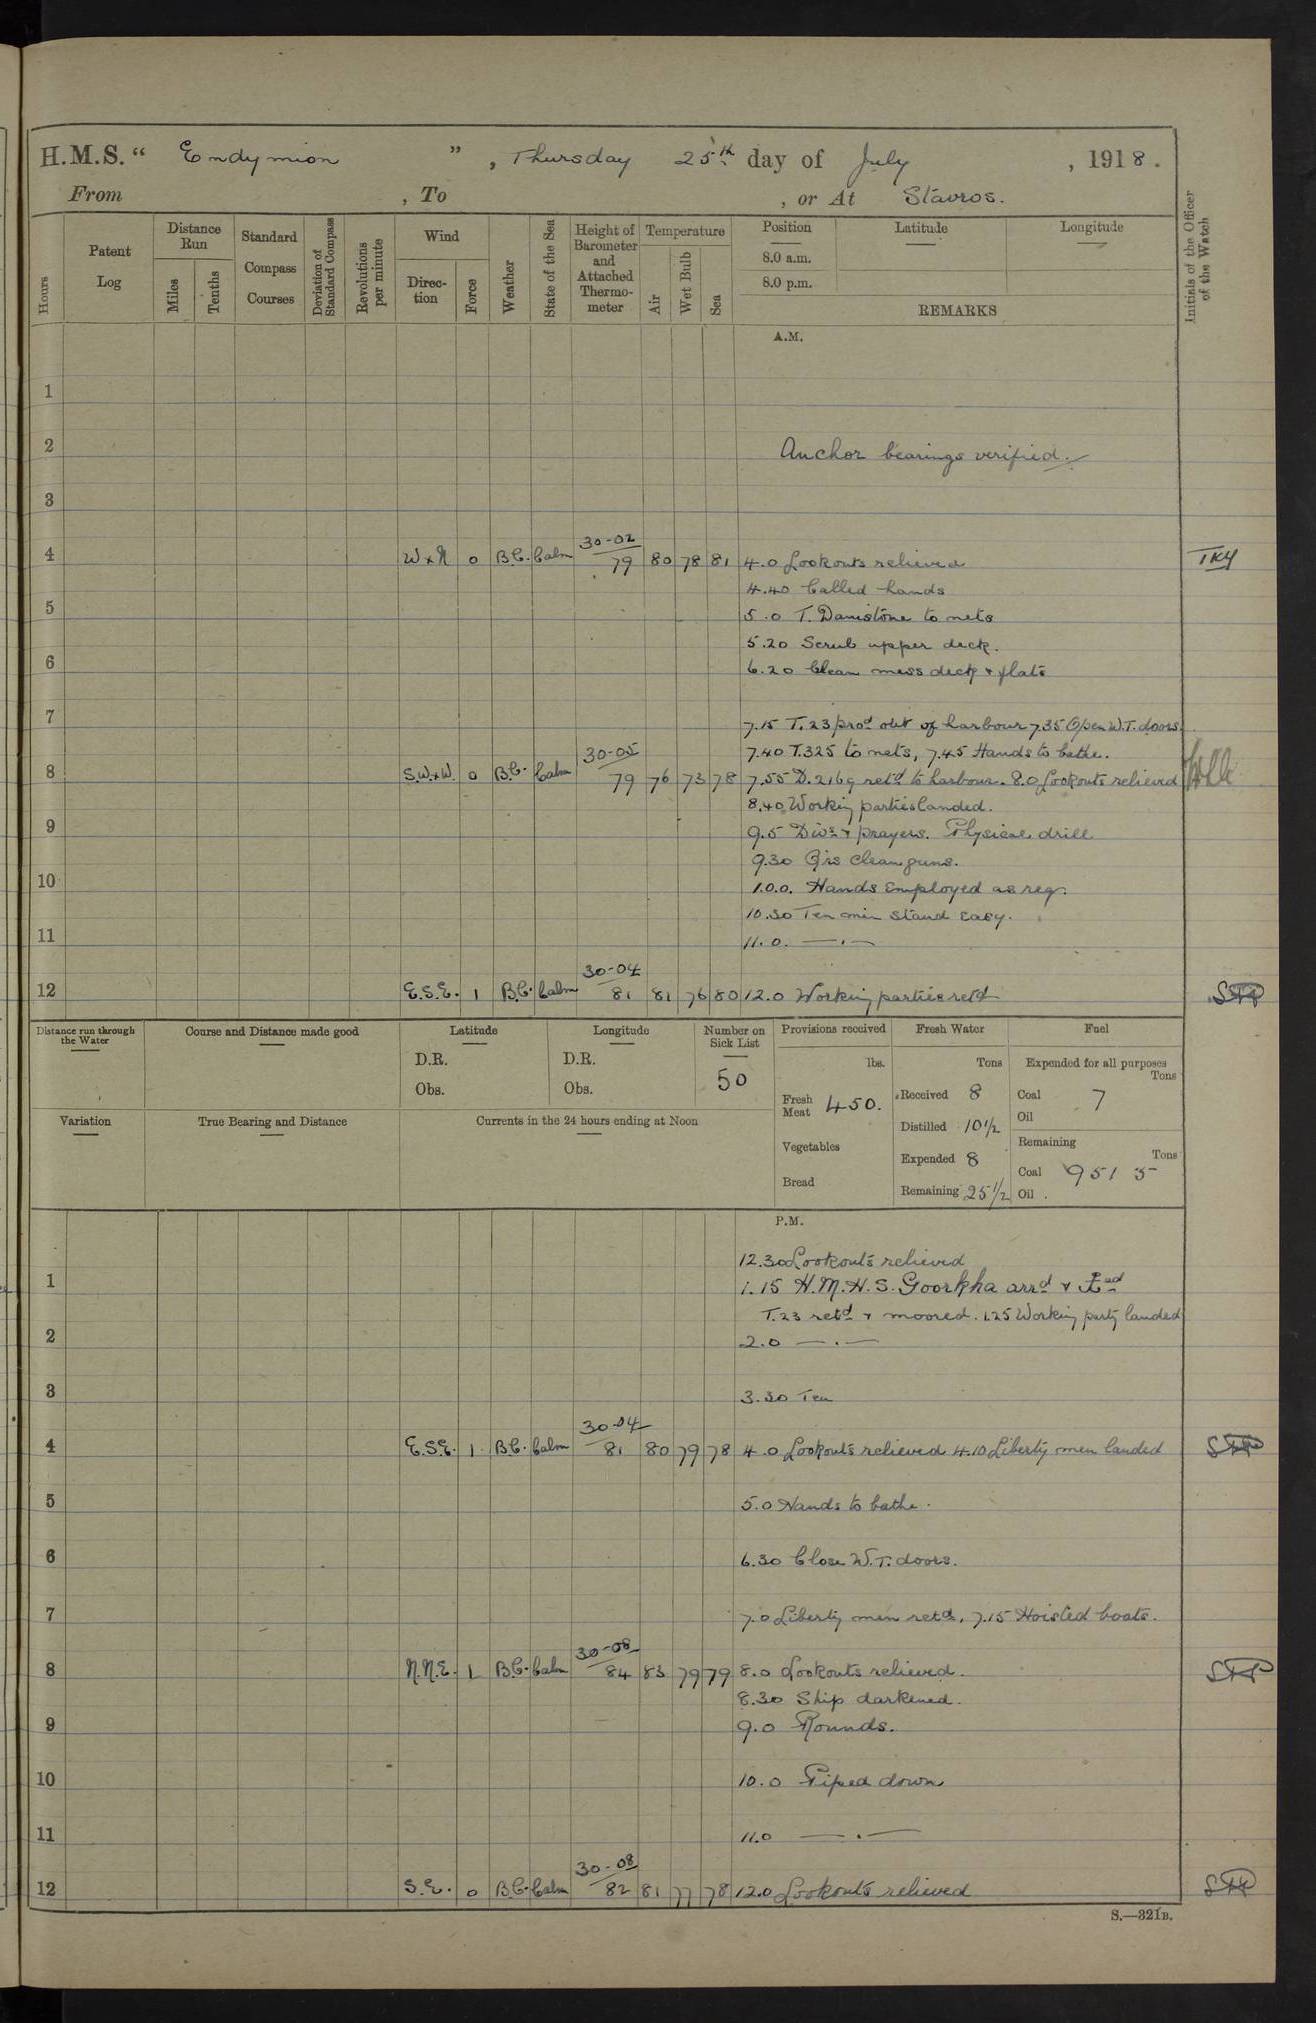 H.M.S. “ Endymion ” , Thursday 25th day of July , 1918.
From , To , or At Stavros.
Hours
Patent Log
Distance Run
Miles
Tenths
Standard Compass Courses
Deviation of Standard Compass
Revolutions per minute
Wind
Direction
Force
Weather
State of the Sea
Height of Barometer and Attached Thermometer
Temperature
Air
Wet Bulb
Sea
Position
Latitude
Longitude
8.0 a.m.
8.0 p.m.
REMARKS
Initials of the Officer of the Watch
A.M.
1
2 Anchor bearings verified.
3
4 W x N 0 B.C. Calm 30-02 79 80 78 81 4.0 Lookouts relieved TKY
4.40 Called hands
5 5.0 T. Danistone to nets
5.20 Scrub upper deck.
6 6.20 Clean mess deck & flats
7 7.15 T.23 procd out of harbour 7.35 Open W.T. doors.
7.40 T.325 to nets, 7.45 Hands to bathe.
8 S.W.xW. 0 B.C. Calm 30-05 79 76 73 78 7.55 D.2169 retd to harbour. 8.0 Lookouts relieved
8.40 Working parties landed.
9 9.5 Divs & prayers. Physical drill
9.30 Qrs clean guns.
10 10.0. Hands Employed as req.
10.30 Ten min stand easy.
11 11.0. —.—
12 E.S.E. 1 B.C. Calm 30-04 81 81 76 80 12.0 Working parties retd
Distance run through the Water
Course and Distance made good
Latitude
D.R.
Obs.
Longitude
D.R.
Obs.
Number on Sick List
50
Provisions received
lbs.
Fresh Meat 450.
Vegetables
Bread
Fresh Water
Tons
Received 8
Distilled 10½
Expended 8
Remaining 25½
Fuel
Expended for all purposes
Tons
Coal 7
Oil
Remaining
Tons
Coal 951 5
Oil
Variation
True Bearing and Distance
Currents in the 24 hours ending at Noon
P.M.
12.30 Lookouts relieved
1 1.15 H.M.H.S. Goorkha arrd &
T.23 retd & moored. 1.25 Working party landed
2 2.0 —.—
3 3.30 Tea
4 E.S.E. 1 B.C. Calm 30-04 81 80 79 78 4.0 Lookouts relieved 4.10 Liberty men landed
5 5.0 Hands to bathe.
6 6.30 Close W.T. doors.
7 7.0 Liberty men retd, 7.15 Hoisted boats.
8 N.N.E. 1 B.C. Calm 30-08 84 83 79 79 8.0 Lookouts relieved.
8.30 Ship darkened.
9 9.0 Rounds.
10 10.0 Piped down
11 11.0 —.—
12 S.E. 0 B.C. Calm 30-08 82 81 77 78 12.0 Lookouts relieved
S.—321B.